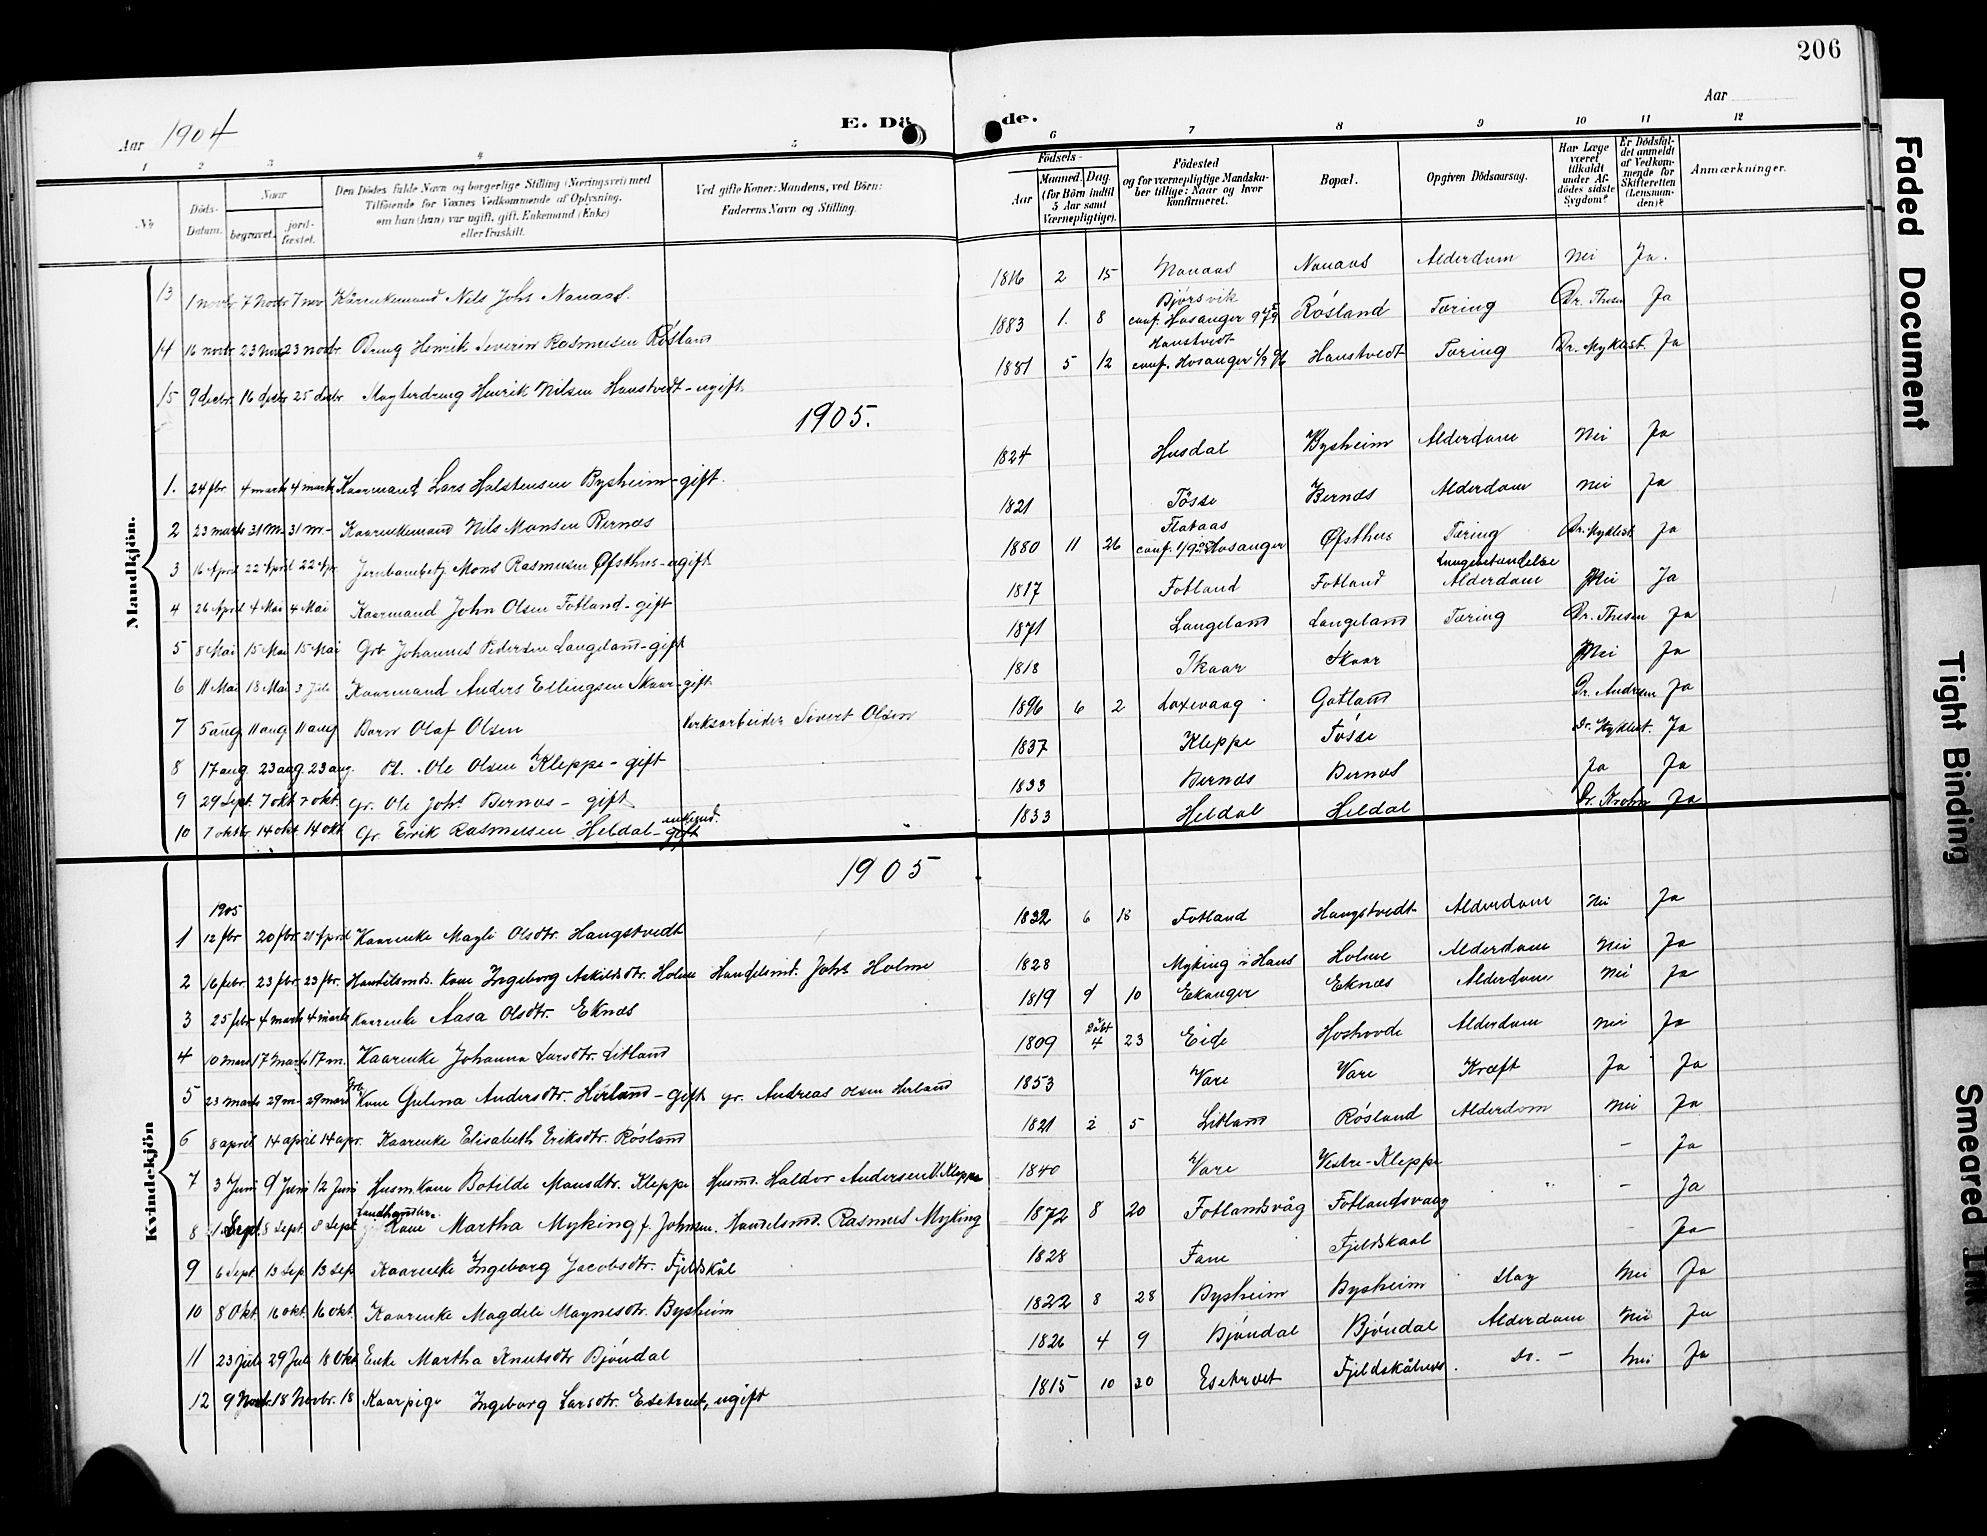 206
Aar 1904
E. Dö de.
Aar
1 2 3 4 5 6 7 8 9 10 11 12
No
Döds-Datum.
Naar begravet. jordfæstet.
Den Dödes fulde Navn og borgerlige Stilling (Næringsvei) med Tilföiende for Voxnes Vedkommende af Oplysning, om han (hun) var ugift, gift, Enkemand (Enke) eller fraskilt.
Ved gifte Koner: Mandens, ved Börn: Faderens Navn og Stilling.
Födsels-
Aar
Maaned. Dag.
(for Börn indtil 5 Aar samt Værnepligtige).
Födested og for værnepligtige Mandskaber tillige: Naar og hvor konfirmeret.
Bopæl.
Opgiven Dödsaarsag.
Har Læge været tilkaldt under Afdödes sidste Sygdom?
Er Dödsfaldet anmeldt af Vedkommende for Skifteretten (Lensmanden)?
Anmærkninger.
Mandkjön.
13 1 novbr 7 Novbr 7 nov Kårenkemand Nils Johs Nanaas. 1816 2 15 Nanaas Nanaas Alderdom Nei Ja.
14 16 novbr 23 Nov 23 novbr Dreng Henrik Severin Rasmusen Røsland 1883 1. 8 Bjørsvik conf. Hosanger Røsland Tæring Dr. Thesen Ja
15 9 decbr. 16 decbr 25 decbr Slagterdreng Henrik Nilsen Hanstvedt - ugift. 1881 5 12 Hanstvedt conf. Hosanger Hanstvedt Tæring Dr. Myklest. Ja
1905.
1. 24 fbr. 4 marts 4 marts Kaarmand Lars Holstensen Bysheim - gift. 1824 Husdal Bysheim Alderdom Nei Ja
2 23 marts 31 M. 31 m. Kaarenkemand Nils Monsen Bernæs 1821 Tøsse Bernæs Alderdom Nei Ja
3 16 April 22 April 22 Apr. Jernbanebetj. Mons Rasmusen Øfsthus - ugift 1880 11 26 Flataas conf. Hosanger Øfsthus Tæring Dr. Myklest Ja
4 26 April 4 Mai 4 Mai Kaarmand John Olsen Fotland - gift 1817 Fotland Fotland Lungebetændelse Alderdom Nei Ja
5 8 Mai 15 Mai 15 Mai Grb. Johannes Pedersen Langeland - gift 1871 Langeland Langeland Tæring Dr. Thesen Ja
6 11 Mai 18 Mai 3 Juli Kaarmand Anders Ellingsen Skaar - gift. 1818 Skaar Skaar Nei Ja
7 5 aug 11 aug 11 aug Barn Olaf Olsen Verksarbeider Sivert Olsen 1896 6 2 Loxevaag Gotland Dr. Andresen Ja
8 17 aug 23 aug. 23 aug. Ole Olsen Kleppe - gift 1837 Kleppe Tøsse Dr. Myklest. Ja
9 29 Sept. 7 okt. 7 okt. Gr. Ole Johs Bernæs - gift 1833 Bernæs Bernæs Ja Ja
10 7 oktbr 14 okt 14 okt Gr. Eirik Rasmusen Heldal - enkemd. gift 1833 Heldal Heldal Dr. Krohn Ja
1905
Kvindekjön
1905
1 12 fbr 20 fbr. 21 April Kaarenke Magli Olsdtr. Hangstvedt 1832 6 18 Fotland Hangstvedt Alderdom Nei Ja
2 16 febr. 23 fbr. 23 fbr. Handelsmds. Kone Ingeborg Askildsdtr. Holme Handelsmd. Johs Holme 1828 Myking i Hans Holme Alderdom Nei Ja
3 25 fbr 4 marts 4 marts Kaarenke Aasa Olsdtr. Eknæs 1819 9 10 Ekanger Eknæs Alderdom Nei Ja
4 10 Mars 17 Marts 17 m. Kaarenke Johanna Larsdtr. Litland 1809 Døbt 4 23 Eide Hoshovde Alderdom Nei Ja
5 23 marts 29 m. 29 mars Grb. Kone Gulina Andersdtr. Herland - gift gr. Andreas Olsen Herland 1853 Vare Vare Kræft Ja Ja
6 8 april 14 april 14 apr. Kaarenke Elisabeth Eriksdtr. Røsland 1821 2 5 Litland Røsland Alderdom Nei Ja
7 3 Juni 9 Juni 12 Juni Husm Kone Botilde Monsdtr. Kleppe Husmd. Haldor Andersen V. Kleppe 1840 Vare Vestre-Kleppe - Ja
8 1 Sept. 8 Sept. 8 Sept. Landhandler Kone Martha Myking f. Johnsen. Handelsmd. Rasmus Myking 1872 8 20 Fotlandsvåg Fotlandsvaag - Ja
9 6 Sept. 13 Sep 13 Sep Kaarenke Ingeborg Jacobsdtr. Fjeldskål 1828 Fane Fjeldskaal - Ja
10 8 Okt. 16 okt 16 okt. Kaarenke Magdeli Magnesdtr. Bysheim 1822 8 28 Bysheim Bysheim Slag Nei Ja
11 23 juli 29 Juli 18 Okt Enke Martha Knutsdtr Bjøndal 1826 4 9 Bjøndal Bjøndal Alderdom Nei Ja
12 9 Novb. 18 Novbr. 18 Kaarpige Ingeborg Larsdtr. Esetræet, ugift 1815 10 30 Esetrvet Do. - Nei Ja
Faded Document
Tight Binding
Smeared Ink